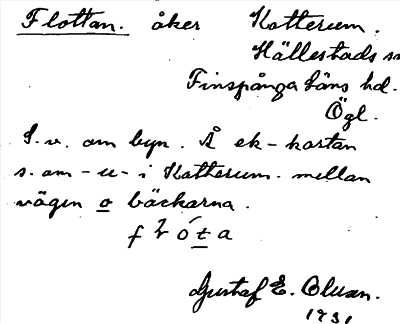 Flottan. åker Katterum.
Hällestads sn
Finspånga läns hd.
Ögl.
S.v. om byn. Å ek-kartan
s. om -u- i Katherum. mellan
vägen o bäckarna.
Gustaf E. Olusn.
1931